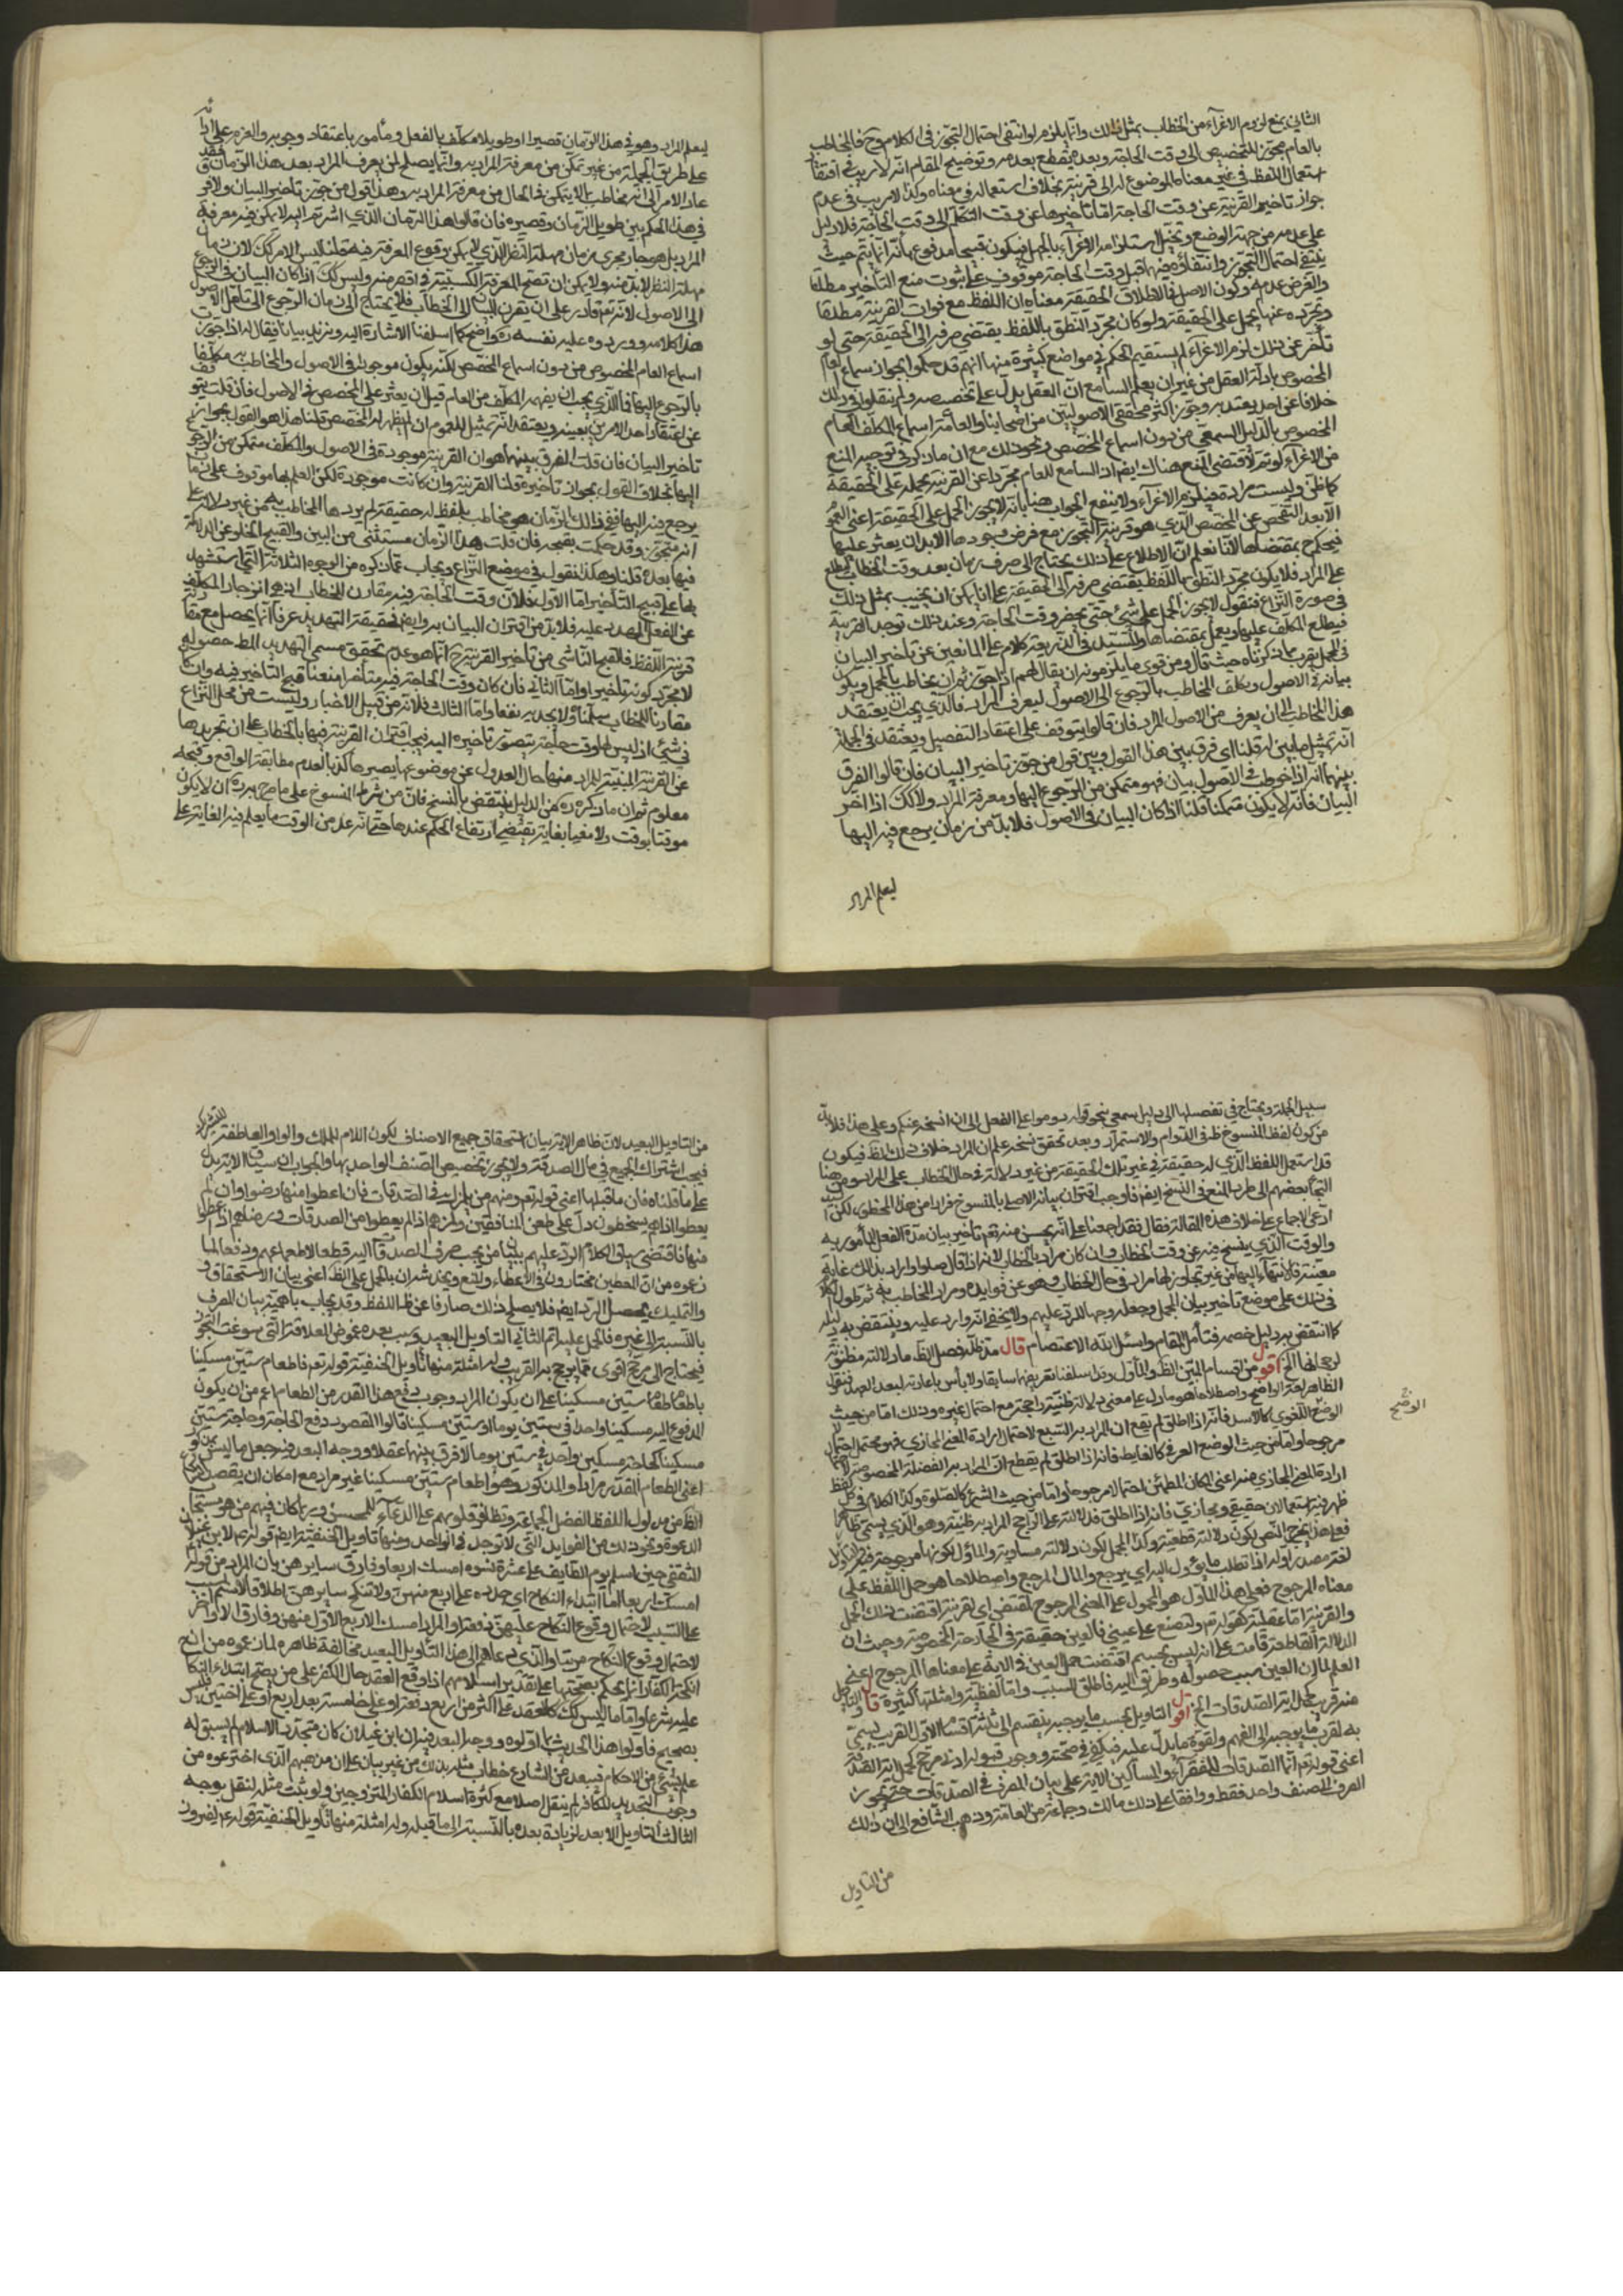 الثاني بمنع لزوم الاغراء من الخطاب بمثل ذلك وانما يلزم لو انتفى احتمال التجوز في الكلام وح فالمخاطب
بالعام مجوز للتخصيص الى وقت الحاجة وبعده ينقطع بعدمه وتوضيح المقام انه لا ريب في افتقار
استعمال اللفظ في غير معناه الموضوع له الى قرينة بخلاف استعماله في معناه وكذا لا ريب في عدم
جواز تاخير القرينة عن وقت الحاجة اما تاخيرها عن وقت التكلم الى وقت الحاجة فلا دليل
على عدمه من جهة الوضع وتخيل استلزامه الاغراء بالجهل فيكون قبيحا مدفوع بانه انما يتم حيث
ينتفي احتمال التجوز وانتفاؤه فيما قبل وقت الحاجة موقوف على ثبوت منع التاخير مطلقا
والفرض عدمه وكون الاصل في الاطلاق الحقيقة معناه ان اللفظ مع فوات القرينة مطلقا
وتجرده عنها يحمل على الحقيقة ولو كان مجرد النطق باللفظ يقتضي صرفه الى الحقيقة حتى لو
تاخر عن ذلك لزم الاغراء لم يستقيم الحكم في مواضع كثيرة منها انهم قد حكموا بجواز سماع العام
المخصوص بادلة العقل من غير ان يعلم السامع ان العقل يدل على تخصيصه ولم ينقلوا في ذلك
خلافا عن احد يعتد به وجوز اكثر محققي الاصوليين من اصحابنا والعامة اسماع المكلف العام
المخصوص بالدليل السمعي من دون اسماع المخصص ونحو ذلك مع ان ما ذكر في توجيه المنع
من الاغراء لو تم لاقتضى المنع هناك ايض اذ السامع للعام مجردا عن القرينة يحمله على الحقيقة
كما ظن وليست مرادة فيلزم الاغراء ولا ينفع الجواب هنا بانه لا يجوز الحمل على الحقيقة اعني العموم
الا بعد التفحص عن المخصص الذي هو قرينة التجوز مع فرض وجودها لابد ان يعثر عليها
فيحكم ح بمقتضاها لانا نعلم ان الاطلاع على ذلك يحتاج الى صرف زمان بعد وقت الخطاب ليطلع
على المراد فلا يكون مجرد النطق باللفظ يقتضي صرفه الى الحقيقة على انا يمكن ان نجيب بمثل ذلك
في صورة النزاع فنقول لا يجوز الحمل على شئ حتى يحضر وقت الحاجة وعند ذلك توجد القرينة
فيطلع المكلف عليها ويعمل بمقتضاها وللسيد في الذريعة كلام على المانعين عن تاخير البيان
في المجمل يقرب مما ذكرناه حيث قال ومن قوي ما يلزمونه ان يقال لهم اذا جوزتم ان يخاطب بالمجمل ويكون
بيانه في الاصول ويكلف المخاطب بالرجوع الى الاصول ليعرف المراد فما الذي يجب ان يعتقد
هذا المخاطب الى ان يعرف من الاصول المراد فان قالوا يتوقف على اعتقاد التفصيل ويعتقد في الجملة
انه يمتثل ما يبين له قلنا اي فرق بين هذا القول وبين قول من جوز تاخير البيان فان قالوا الفرق
بينهما انه اذا خوطب في الاصول بيان فهو متمكن من الرجوع اليها ومعرفة المراد ولا كك اذا اخر
البيان فانه لا يكون متمكنا قلنا اذا كان البيان في الاصول فلا بد من زمان يرجع فيه اليها
ليعلم المراد
ليعلم المراد وهو في هذا الزمان قصيرا او طويلا مكلف بالفعل ومامور باعتقاد وجوبه والعزم على ادائه
على طريق الجملة من غير تمكن من معرفة المراد به وانما يصلح ان يعرف المراد بعد هذا الزمان فقد
عاد الامر الى انه مخاطب بما لا يتمكن في الحال من معرفة المراد به وهذا قول من جوز تاخير البيان ولا فرق
في هذا الحكم بين طويل الزمان وقصيره فان قالوا هذا الزمان الذي اشرتم اليه لا يمكن فيه معرفة
المراد بل هو جار مجرى زمان مهلة النظر الذي لا يمكن وقوع المعرفة فيه قلنا ليس الامر كك لان زمان
مهلة النظر لا بد منه ولا يمكن ان تصح المعرفة الكسبية في اقصر منه وليس كك اذا كان البيان في الرجوع
الى الاصول لانه تعم قادر على ان يقرن البيان الى الخطاب فلا يحتاج الى زمان الرجوع الى تامل الاصول
هذا كلامه ووروده عليه نفسه ره واضح كما اسلفنا الاشارة اليه ونزيد بيانا فيقال له اذا جوزت
اسماع العام المخصوص من دون اسماع المخصص لكنه يكون موجودا في الاصول والمخاطب به مكلفا
بالرجوع اليها فما الذي يجب ان يفهم المكلف من العام قبل ان يعثر على المخصص في الاصول فان قلت يتوقف
عن اعتقاد احد الامرين بعينه ويعتقد انه يمتثل للعموم ان لم يظهر له المخصص قلنا هذا هو القول بجواز
تاخير البيان فان قلت الفرق بينهما هو ان القرينة موجودة في الاصول والمكلف متمكن من الرجوع
اليها بخلاف القول بجواز تاخيره قلنا القرينة وان كانت موجودة لكن العلم بها موقوف على زمان
يرجع فيه اليها ففي ذلك الزمان هو مخاطب بلفظ له حقيقة لم يردها المخاطب به من غير دلالة على
انه متجوز وقد حكمت بقبحه فان قلت هذا الزمان مستثنى من البين والقبيح الخلو عن الدلالة
فيما بعده قلنا وهكذا نقول في موضع النزاع ويجاب عما ذكره من الوجوه الثلاثة التي استشهد
بها على قبيح التاخير اما الاول فلان وقت الحاجة فيه مقارن للخطاب اذ هو انزجار المكلف
عن الفعل المهدد عليه فلا بد من اقتران البيان به وايضا فحقيقة التهديد عرفا انما يحصل مع مقارنة
قرينة اللفظ فالقبح الناشي من تاخير القرينة ح انما هو عدم تحقق مسمى التهديد المط حصوله
لا مجرد كونه تاخيرا واما الثاني فان كان وقت الحاجة فيه متاخرا منعنا قبح التاخير فيه وان كان
مقارنا للخطاب سلمناه ولا يجديه نفعا واما الثالث فلانه من قبيل الاخبار وليست من محل النزاع
في شئ اذ ليس لها وقت حاجة يتصور تاخيره اليه فيجب اقتران القرينة فيها بالخطاب على ان تجريدها
عن القرينة المبينة للمراد منها حال العدول عن موضوعها يصيرها كذبا لعدم مطابقة الواقع وقبحه
معلوم ثم ان ما ذكره ره من الدليل ينتقض بالنسخ فان من شرط المنسوخ على ما صرح به ان لا يكون
موقتا بوقت ولا مغيا بغاية يقتضي ارتفاع الحكم عندها حتى انه عد من الوقت ما يعلم فيه الغاية على
سبيل الجملة ويحتاج في تفصيلها الى دليل سمعي نحو قوله دوموا على الفعل الى ان انسخه عنكم وعلى هذا فلا بد
من كون لفظ المنسوخ ظ في الدوام والاستمرار وبعد تحقق نسخه علم ان المراد خلاف ذلك الظ فيكون
قد استعمل اللفظ الذي له حقيقة في غير تلك الحقيقة من غير دلالة في حال الخطاب على المراد ومن هنا
التجأ بعضهم الى طرد المنع في النسخ ايض فاوجب اقتران بيانه الاجمالي بالمنسوخ فرارا من هذا المحظور لكن السيد
ادعى الاجماع على خلاف هذه المقالة فقال فقد اجمعنا على انه يحسن منه تعم تاخير بيان مدة الفعل المأمور به
والوقت الذي ينسخ فيه عن وقت الخطاب وان كان مرادا بالخطاب لانه اذا قال صلوا واراد بذلك غاية
معينة فالانتهاء اليها من غير تجاوز لها مراد في حال الخطاب وهو عن فوايده ومراد المخاطب به ثم طول الكلام
في ذلك على موضع تاخير بيان المجمل وجعله وجها للرد عليهم ولا يخفى انه وارد عليه وينتقض به دليله
كما انتقض به دليل خصمه فتأمل المقام واسئل الله الاعتصام قال مد ظله فصل الظ ما دلالته مظنونة
لرجحانها الخ اقول من اقسام المتن الظ والمأول وقد اسلفنا تعريفهما سابقا ولا بأس باعادته لبعد العهد فنقول
الظاهر لغة الواضح واصطلاحا هو ما دل على معنى دلالة ظنية راجحة مع احتمال غيره وذلك اما من حيث
الوضع اللغوي كالاسد فانه اذا اطلق لم يقع ان المراد به السبع لاحتمال ارادة المعنى المجازي فهو محتمل احتمالا
مرجوحا واما من حيث الوضع العرفي كالغايط فانه اذا اطلق لم يقطع ان المراد به الفضلة المخصوصة لاحتمال
ارادة المعنى المجازي منه اعني المكان المطمئن احتمالا مرجوحا واما من حيث الشرع كالصلوة وكذا الكلام في كل لفظ
ظهر فيه استعمالان حقيقي ومجازي فانه اذا اطلق فدلالته على الراجح المراد به ظنية وهو الذي يسمى ظاهرا
فعلى هذا يخرج النص لكون دلالته قطعية وكذا المجمل لكون دلالته مساوية والمأول لكونها مرجوحة فيه والتاويل
لغة مصدر اوله اذا تطلب ما يؤول اليه اي يرجع والمال المرجع واصطلاحا هو حمل اللفظ على
معناه المرجوح فعلى هذا المأول هو المحمول على المعنى المرجوح لمقتض اي لقرينة اقتضت ذلك الحمل
والقرينة اما عقلية كقوله تعم ولتصنع على عيني فالعين حقيقة في الجارحة المخصوصة وحيث ان
الدلالة القاطعة قامت على انه ليس بجسم اقتضت حمل العين في الاية على معناها المرجوح اعني
العلم لما ان العين سبب حصوله وطريق اليه فاطلق السبب واما لفظية وامثلتها كثيرة قال والتاويل
منه قريب كحمل اية الصدقات الخ اقول التاويل بحسب ما يوجبه ينقسم الى ثلثة اقسام الاول القريب يسمى
به لقرب ما يوجبه الى الفهم ولقوة ما يدل عليه فيكفي في صحته ووجوب قبوله ادنى مرجح كحمل اية الصدقة
اعني قوله تعم انما الصدقات للفقراء والمساكين الاية على بيان المصرف في الصدقات حتى يجوز
الصرف الى صنف واحد فقط ووافقنا على ذلك مالك وجماعة من العامة وذهب الشافعي الى ان ذلك
الوضح
من التاويل
من التاويل البعيد لان ظاهر الاية بيان استحقاق جميع الاصناف لكون اللام للملك والواو العاطفة للتشريك
فيجب اشتراك الجميع في مال الصدقة ولا يجوز تخصيص الصنف الواحد بها والجواب ان سياق الاية يدل
على ما قلناه فان ما قبلها اعني قوله تعم ومنهم من يلمزك في الصدقات فان اعطوا منها رضوا وان لم
يعطوا اذا هم يسخطون دل على طعن المنافقين ولمزهم اذا لم يعطوا من الصدقات ورضاهم اذا اعطوا
منها فاقتضى سياق الكلام الرد عليهم ببيان من يجب صرف الصدقات اليه قطعا لاطماعهم ودفعا لما
زعموه من ان المعطين مختارون في الاعطاء والمنع ويخدشه ان بالحمل على الظ اعني بيان الاستحقاق و
والتمليك يحصل الرد ايض فلا يصلح ذلك صارفا عن ظ اللفظ وقد يجاب باهمية بيان المصرف
بالنسبة الى غيره فالحمل عليه اتم الثاني التاويل البعيد وسبب بعده غموض العلاقة التي سوغت التجوز
فيحتاج الى مرجح اقوى مما يرجح به القريب وله امثلة منها تاويل الحنفية قوله تعم فاطعام ستين مسكينا
باطعام طعام ستين مسكينا على ان يكون المراد وجوب دفع هذا القدر من الطعام اعم من ان يكون
المدفوع اليه مسكينا واحدا في ستين يوما او ستين مسكينا قالوا المقصود دفع الحاجة وحاجة ستين
مسكينا كحاجة مسكين واحد في ستين يوما لا فرق بينهما عقلا ووجه البعد فيه جعل ما ليس بمذكور
اعني الطعام المقدر مرادا والمذكور وهو اطعام ستين مسكينا غير مراد مع امكان ان يقصد
الظ من مدلول اللفظ لفضل الجماعة وتظافر قلوبهم على الدعاء للمحسن وربما كان فيهم من هو مستجاب
الدعوة ونحو ذلك من الفوايد التي لا توجد في الواحد ومنها تاويل الحنفية ايض قوله عم لابن غيلان
الثقفي حين اسلم يوم الطايف على عشرة نسوة امسك اربعا وفارق سايرهن بان المراد من قوله
امسك اربعا اما ابتداء النكاح اي جدده على اربع منهن ولا تنكح سايرهن اطلاقا لاسم المسبب
على السبب لاحتمال وقوع النكاح عليهن دفعة او المراد امسك الاربع الاول منهن وفارق الاواخر
لاحتمال وقوع النكاح مرتبا والذي دعاهم الى هذا التاويل البعيد مخالفة ظاهره لما زعموه من ان
انكحة الكفار انما يحكم بصحتها على تقدير اسلامهم اذا وقع العقد حال الكفر على من يصح ابتداء النكاح
عليه شرعا واما ما ليس كك كالعقد على اكثر من اربع دفعة او على خامسة بعد اربع او على اختين فليس
بصحيح فاولوا هذا الحديث بما اولوه ووجه البعد فيه ان ابن غيلان كان متجدد الاسلام لم يسبق له
علم بشئ من الاحكام فيبعد من الشارع خطاب مثله بذلك من غير بيان على ان مذهبهم الذي اخترعوه من
وجوب التجديد للكافر لم ينقل اصلا مع كثرة اسلام الكفار المتزوجين ولو ثبت مثله لنقل بوجه
الثالث التاويل الابعد لزيادة بعده بالنسبة الى ما قبله وله امثلة منها تاويل الحنفية قوله عم لفيروز